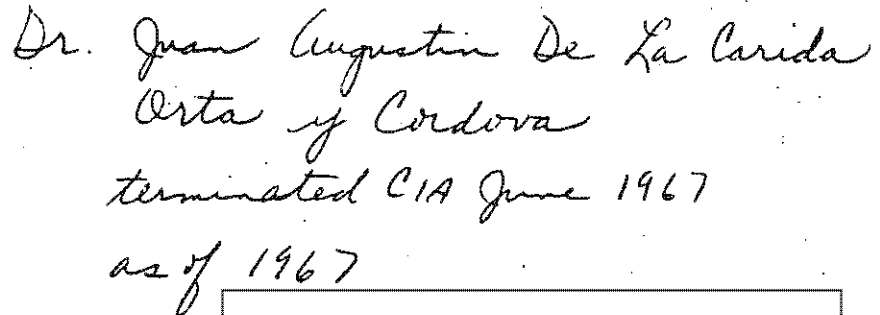 Dr. Juan Augustin De La Carida
Orta y Cordova
terminated CIA June 1967
as of 1967